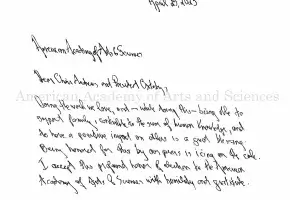 April 27, 2023
American Academy of Arts & Sciences
Dear Chair and President
American Academy of Arts and Sciences
Doing the work we love, and – while doing this – being able to
support family, contribute to the sum of human knowledge, and
to have a positive impact on others is a great blessing.
Being honored for this by our peers is icing on the cake.
I accept this profound honor of election to the American
Academy of Arts & Sciences with humility and gratitude.